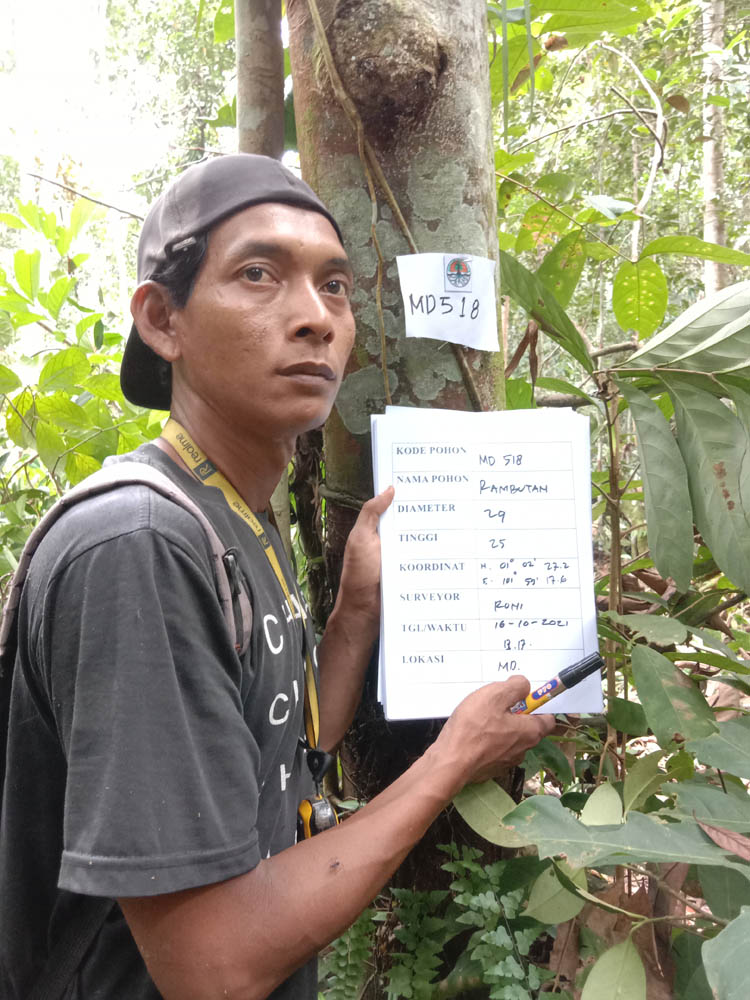 MD518
KODE POHON MD 518
NAMA POHON RAMBUTAN
DIAMETER 29
TINGGI 25
KOORDINAT H. 01° 02' 27.2
E. 101° 59' 17.6
SURVEYOR RONI
TGL/WAKTU 16-10-2021
LOKASI MD.
realme